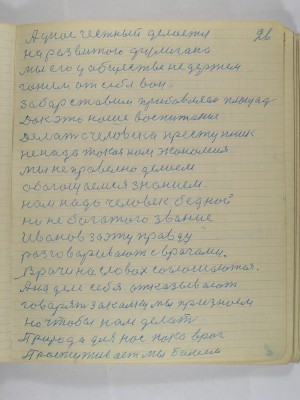 26
А умное честный делается
на развитого хулигана
мы его у общества не держим
гоним от себя вон.
забор ставим прибавляем площад
Как это наше воспитания
Делать человека преступник
ненада такая нам экономия
мы не правельно делаем
обогощаемся знанием.
нам надо человек бедной
но не богатого звание
Иванов за эту правду
разговаривают с врачами.
Врачи на словах соглошаются.
А на деле себя отказывают
говарят закалку мы признаем
но чтобы нам делать
Природа для нас пока враг
Простуживает мы болеем